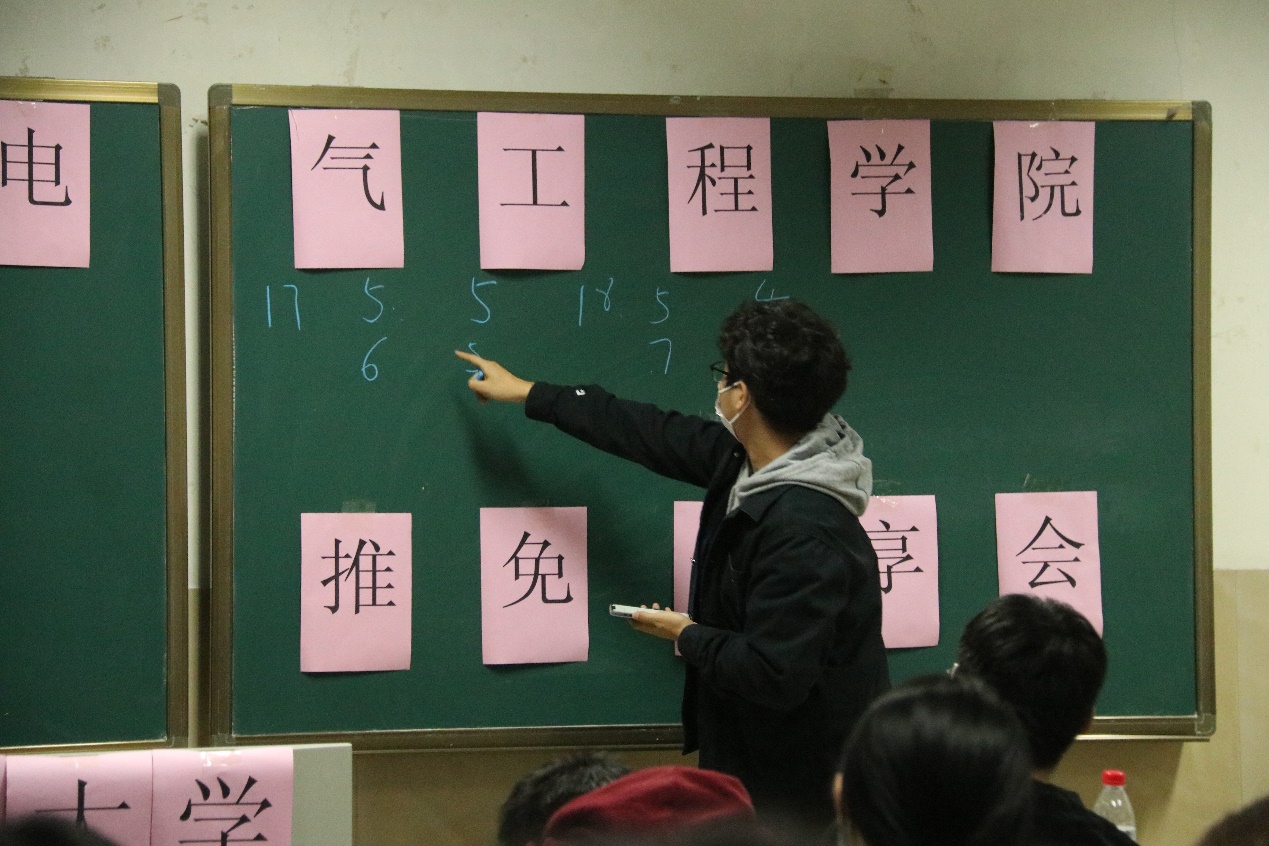 电 气 工 程 学 院
17 5 5 18 5 4
6 5 7
推 免 享 会
大 学